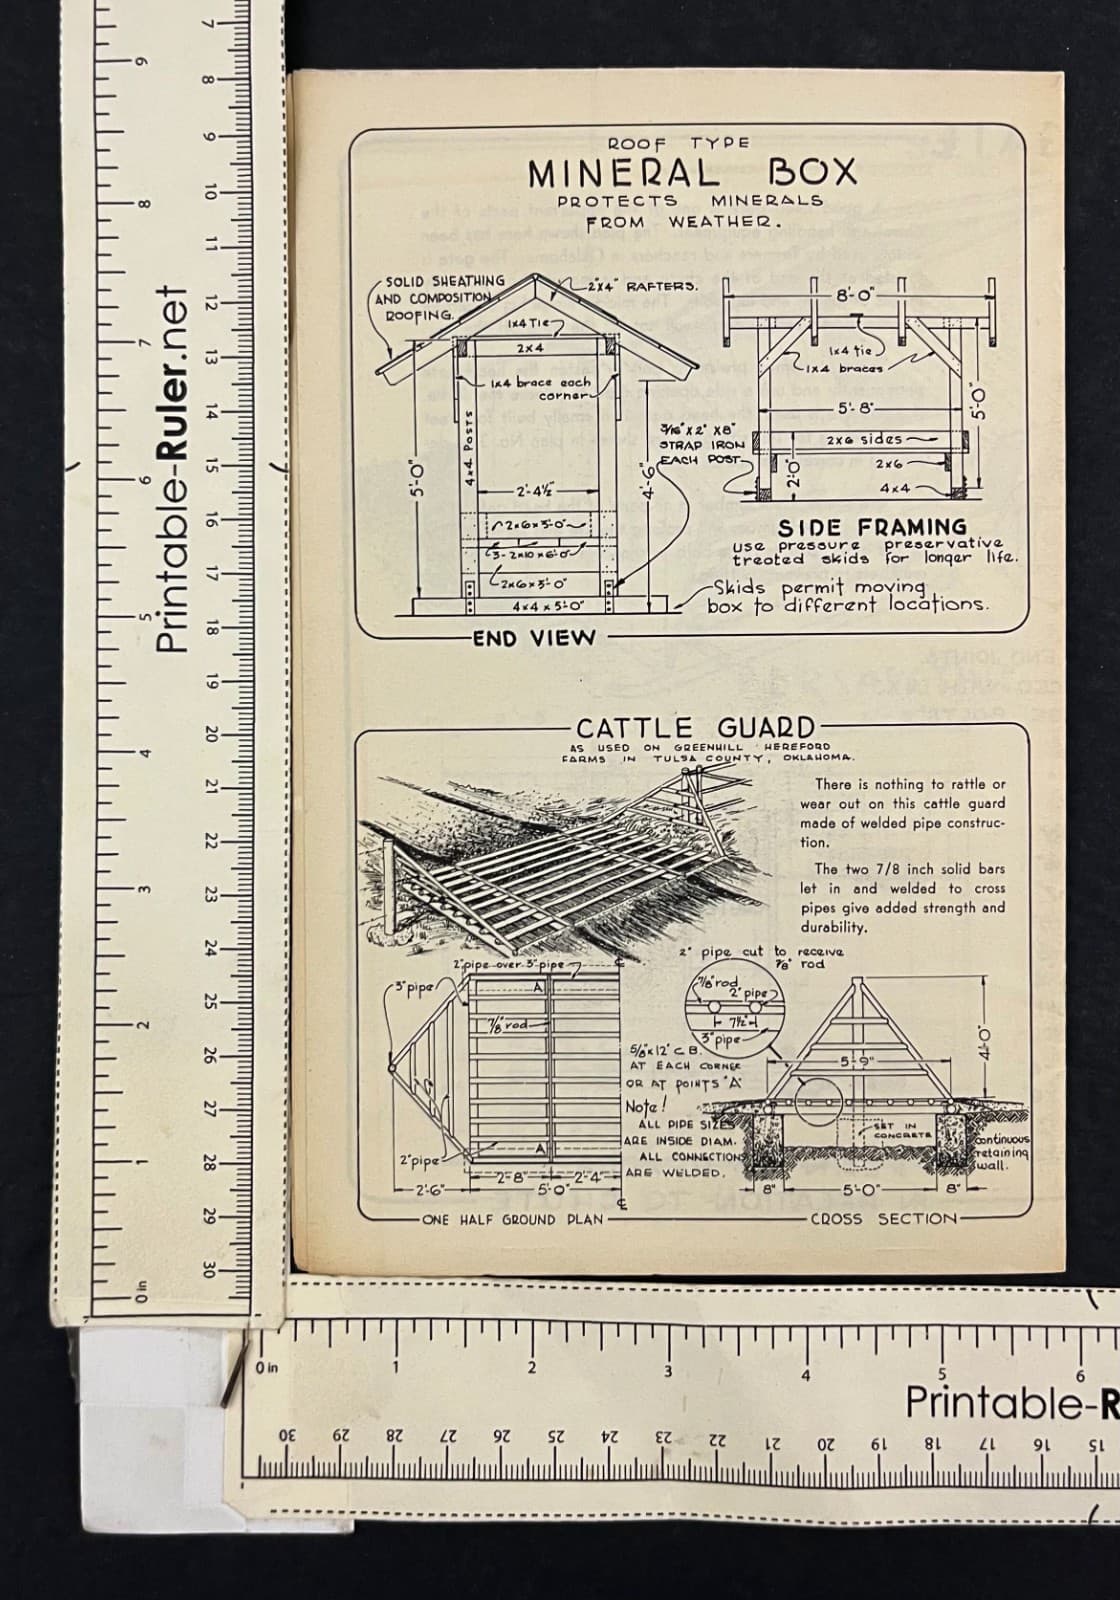 ROOF TYPE
MINERAL BOX
PROTECTS MINERALS
FROM WEATHER.
SOLID SHEATHING
AND COMPOSITION
ROOFING.
2"x4" RAFTERS.
1x4 TIE
2x4
1x4 brace each
corner
4x4 POSTS
5'-0"
2'-4½"
4'-6"
2x6x3'-0"
3-2x10x6'-0"
2x6x3'-0"
4x4x5'-0"
3/16" x 2" x 8"
STRAP IRON
EACH POST
END VIEW
8'-0"
1x4 tie
1x4 braces
5'-8"
5'-0"
2x6 sides
2x6
2'-0"
4x4
SIDE FRAMING
use pressure preservative
treated skids for longer life.
Skids permit moving
box to different locations.
CATTLE GUARD
AS USED ON GREENHILL HEREFORD
FARMS IN TULSA COUNTY, OKLAHOMA.
There is nothing to rattle or
wear out on this cattle guard
made of welded pipe construc-
tion.
The two 7/8 inch solid bars
let in and welded to cross
pipes give added strength and
durability.
2" pipe over 3" pipe
3" pipe
A
7/8" rod
2" pipe
A
2'-8"
2'-4"
2'-6"
5'-0"
ONE HALF GROUND PLAN
2" pipe cut to receive
7/8" rod
7/8" rod
2" pipe
7½"
3" pipe
5/8 x 12" C.B.
AT EACH CORNER
OR AT POINTS "A"
Note!
ALL PIPE SIZES
ARE INSIDE DIAM.
ALL CONNECTIONS
ARE WELDED.
5'-9"
4'-0"
SET IN
CONCRETE
Continuous
retaining
wall.
8"
5'-0"
8"
CROSS SECTION
Printable-Ruler.net
9
8
7
6
5
4
3
2
1
0 in
7
8
9
10
11
12
13
14
15
16
17
18
19
20
21
22
23
24
25
26
27
28
29
30
0 in
1
2
3
4
5
6
Printable-R
30
29
28
27
26
25
24
23
22
21
20
19
18
17
16
15